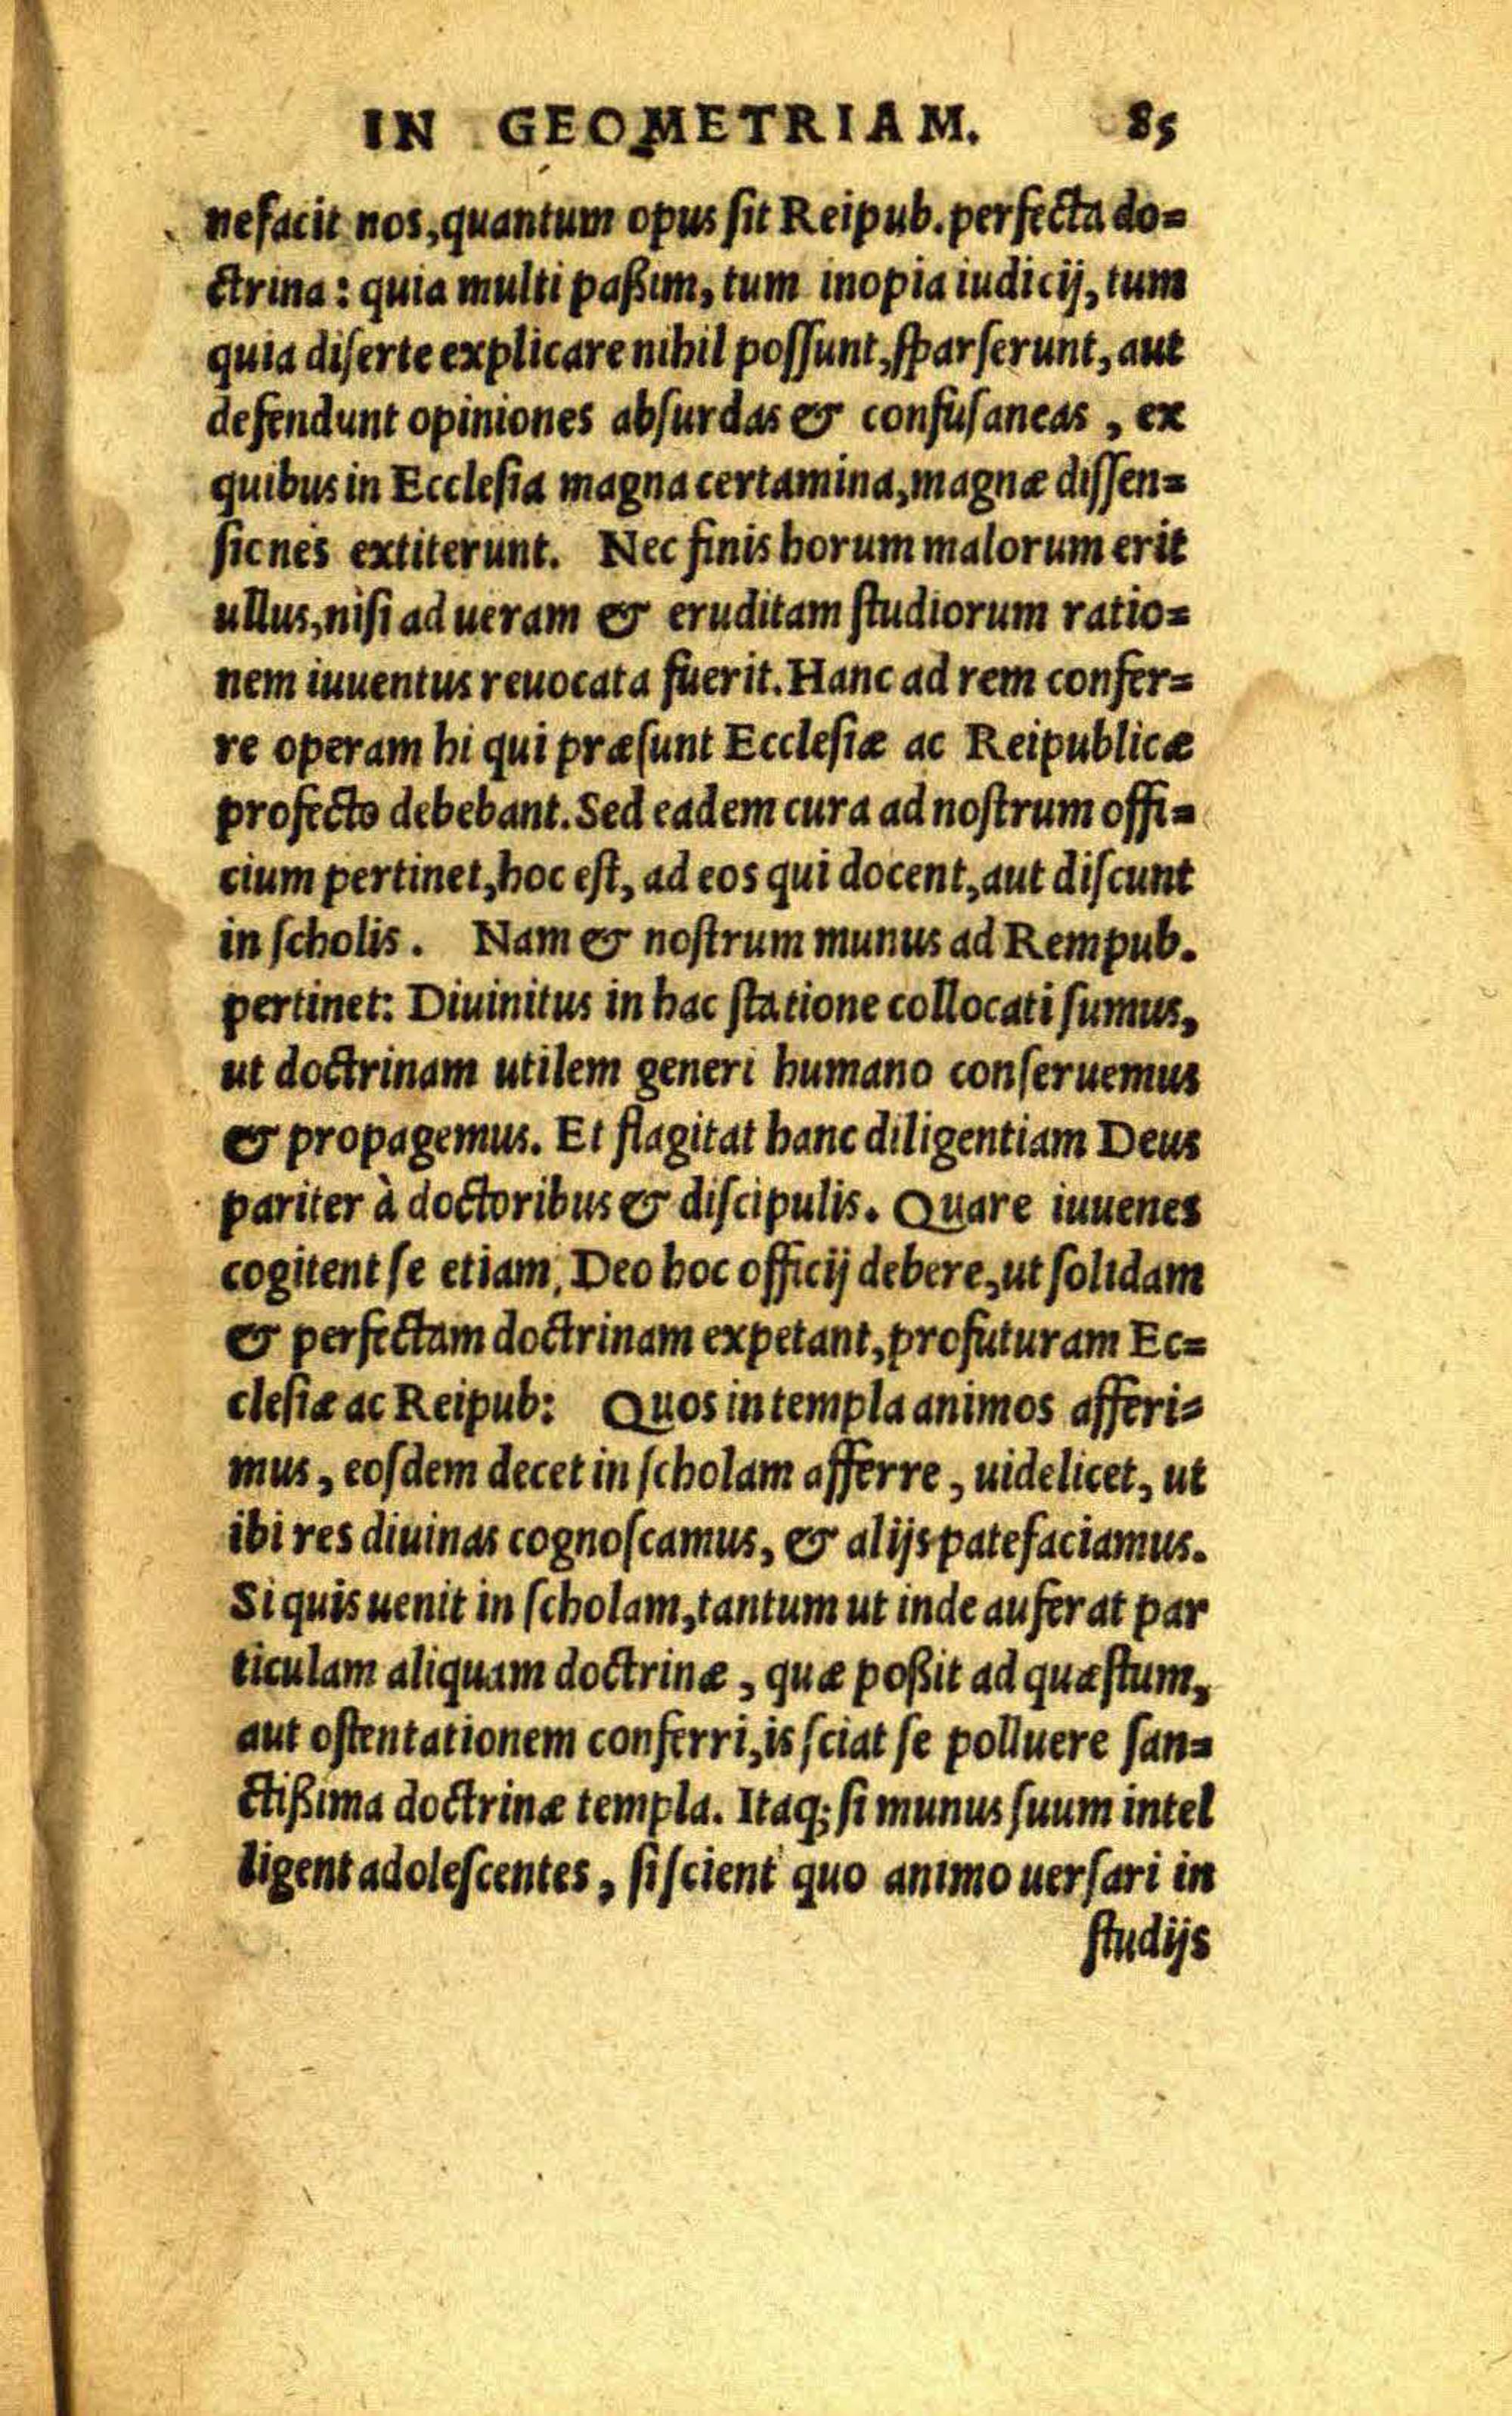 IN GEOMETRIAM. 85
nefacit nos, quantum opus ſit Reipub. perfecta do=
ctrina: quia multi paßim, tum inopia iudicij, tum
quia diſerte explicare nihil poſſunt, ſparſerunt, aut
defendunt opiniones abſurdas & confuſaneas, ex
quibus in Eccleſia magna certamina, magnæ diſſen=
ſicnes extiterunt. Nec finis horum malorum erit
ullus, niſi ad ueram & eruditam ſtudiorum ratio=
nem iuuentus reuocata fuerit. Hanc ad rem confer=
re operam hi qui præſunt Eccleſiæ ac Reipublicæ
profecto debebant. Sed eadem cura ad noſtrum offi=
cium pertinet, hoc eſt, ad eos qui docent, aut diſcunt
in ſcholis. Nam & noſtrum munus ad Rempub.
pertinet: Diuinitus in hac ſtatione collocati ſumus,
ut doctrinam utilem generi humano conſeruemus
& propagemus. Et flagitat hanc diligentiam Deus
pariter à doctoribus & diſcipulis. Quare iuuenes
cogitent ſe etiam, Deo hoc officij debere, ut ſolidam
& perfectam doctrinam expetant, profuturam Ec=
cleſiæ ac Reipub: Quos in templa animos afferi=
mus, eoſdem decet in ſcholam afferre, uidelicet, ut
ibi res diuinas cognoſcamus, & alijs patefaciamus.
Si quis uenit in ſcholam, tantum ut inde auferat par
ticulam aliquam doctrinæ, quæ poßit ad quæſtum,
aut oſtentationem conferri, is ſciat ſe polluere ſan=
ctißima doctrinæ templa. Itaq; ſi munus ſuum intel
ligent adoleſcentes, ſi ſcient quo animo uerſari in
ſtudijs